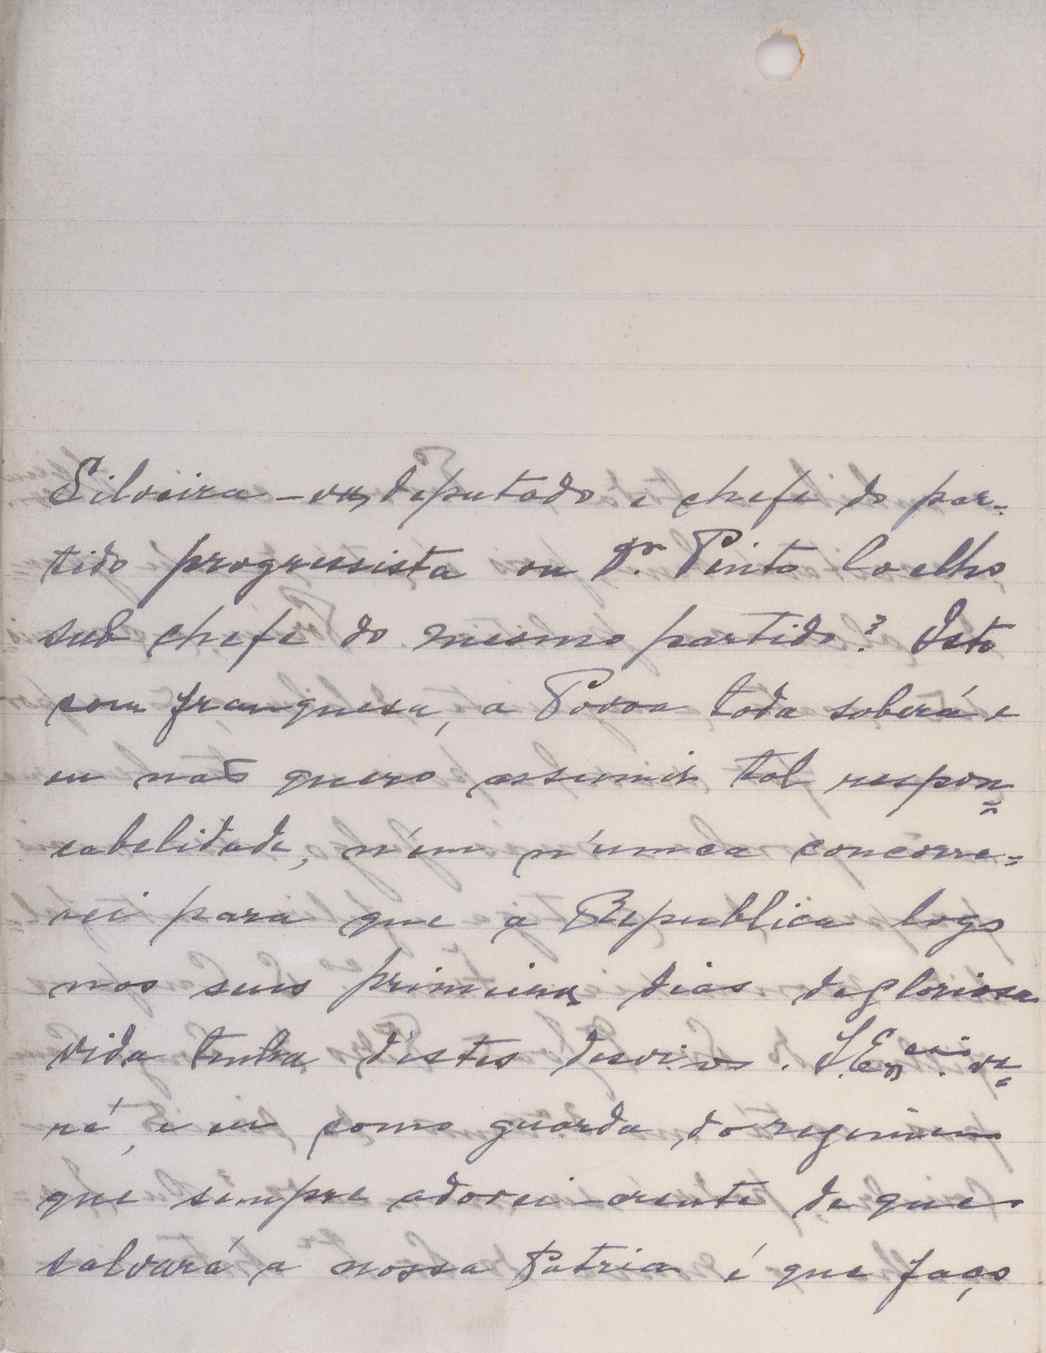 Silveira - ex, deputado e chefe do par-
tido progressista ou Dr. Pinto Coelho,
sub chefe do mesmo partido? Isto
com franquesa, a Povoa toda saberá e
eu não quero assumir tal respon=
sabelidade, n'em n'umca concorre=
rei para que a Republica logo
nos seus primeiros dias de gloriosa
vida tenha destes desvios. S. Exª. ve=
rá, e eu como guarda do regimen
que sempre adorei crente de que
salvará a nossa Patria é que faço